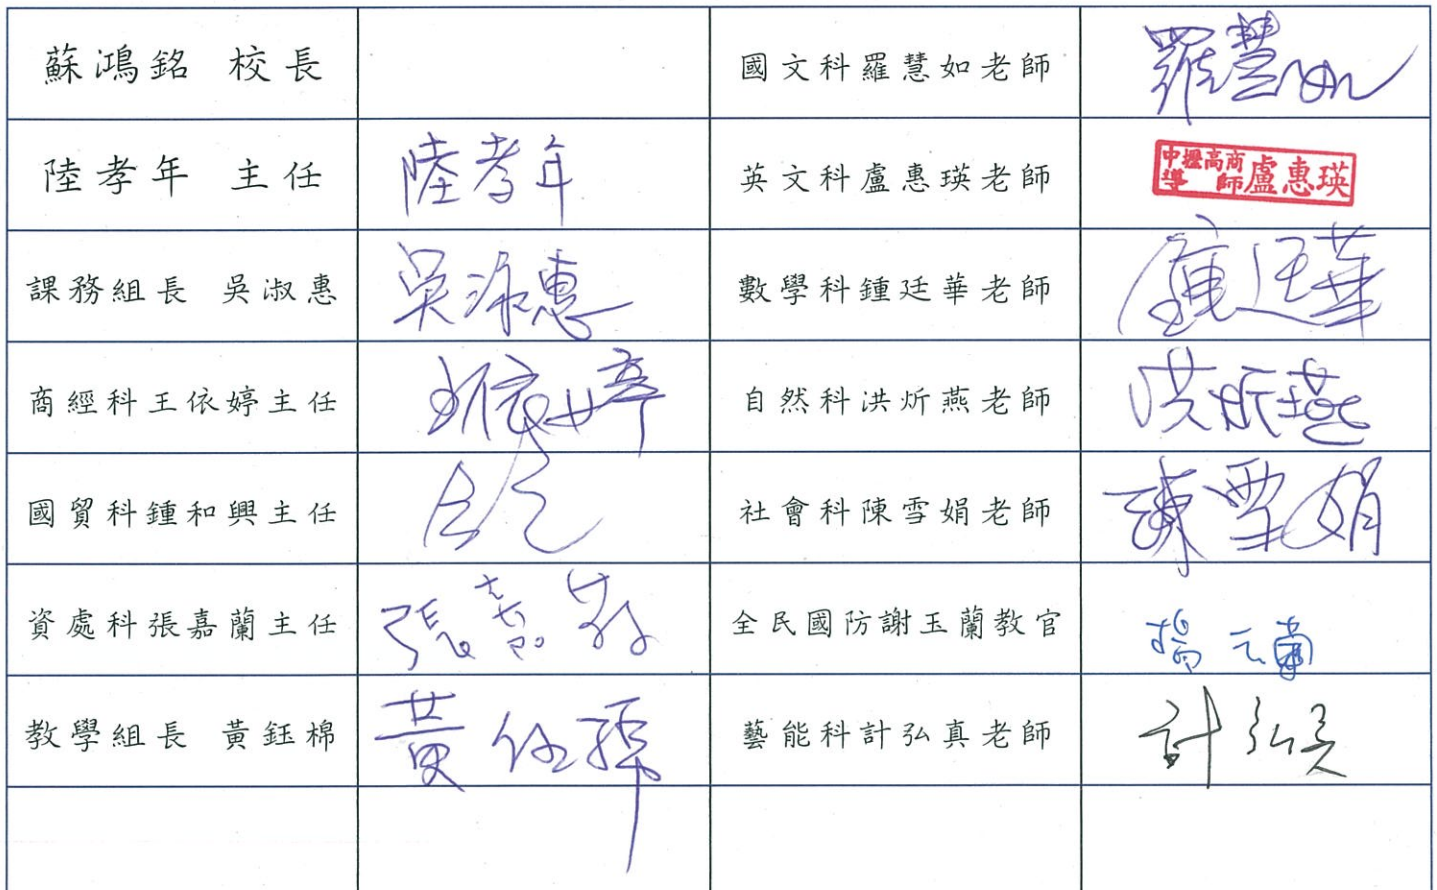 蘇鴻銘 校長
國文科羅慧如老師 羅慧如
陸孝年 主任 陸孝年
英文科盧惠瑛老師 中壢高商導師盧惠瑛
課務組長 吳淑惠 吳淑惠
數學科鍾廷華老師 鍾廷華
商經科王依婷主任 王依婷
自然科洪炘燕老師 洪炘燕
國貿科鍾和興主任
社會科陳雪娟老師 陳雪娟
資處科張嘉蘭主任 張嘉
全民國防謝玉蘭教官
教學組長 黃鈺棉 黃
藝能科計弘真老師 計弘真